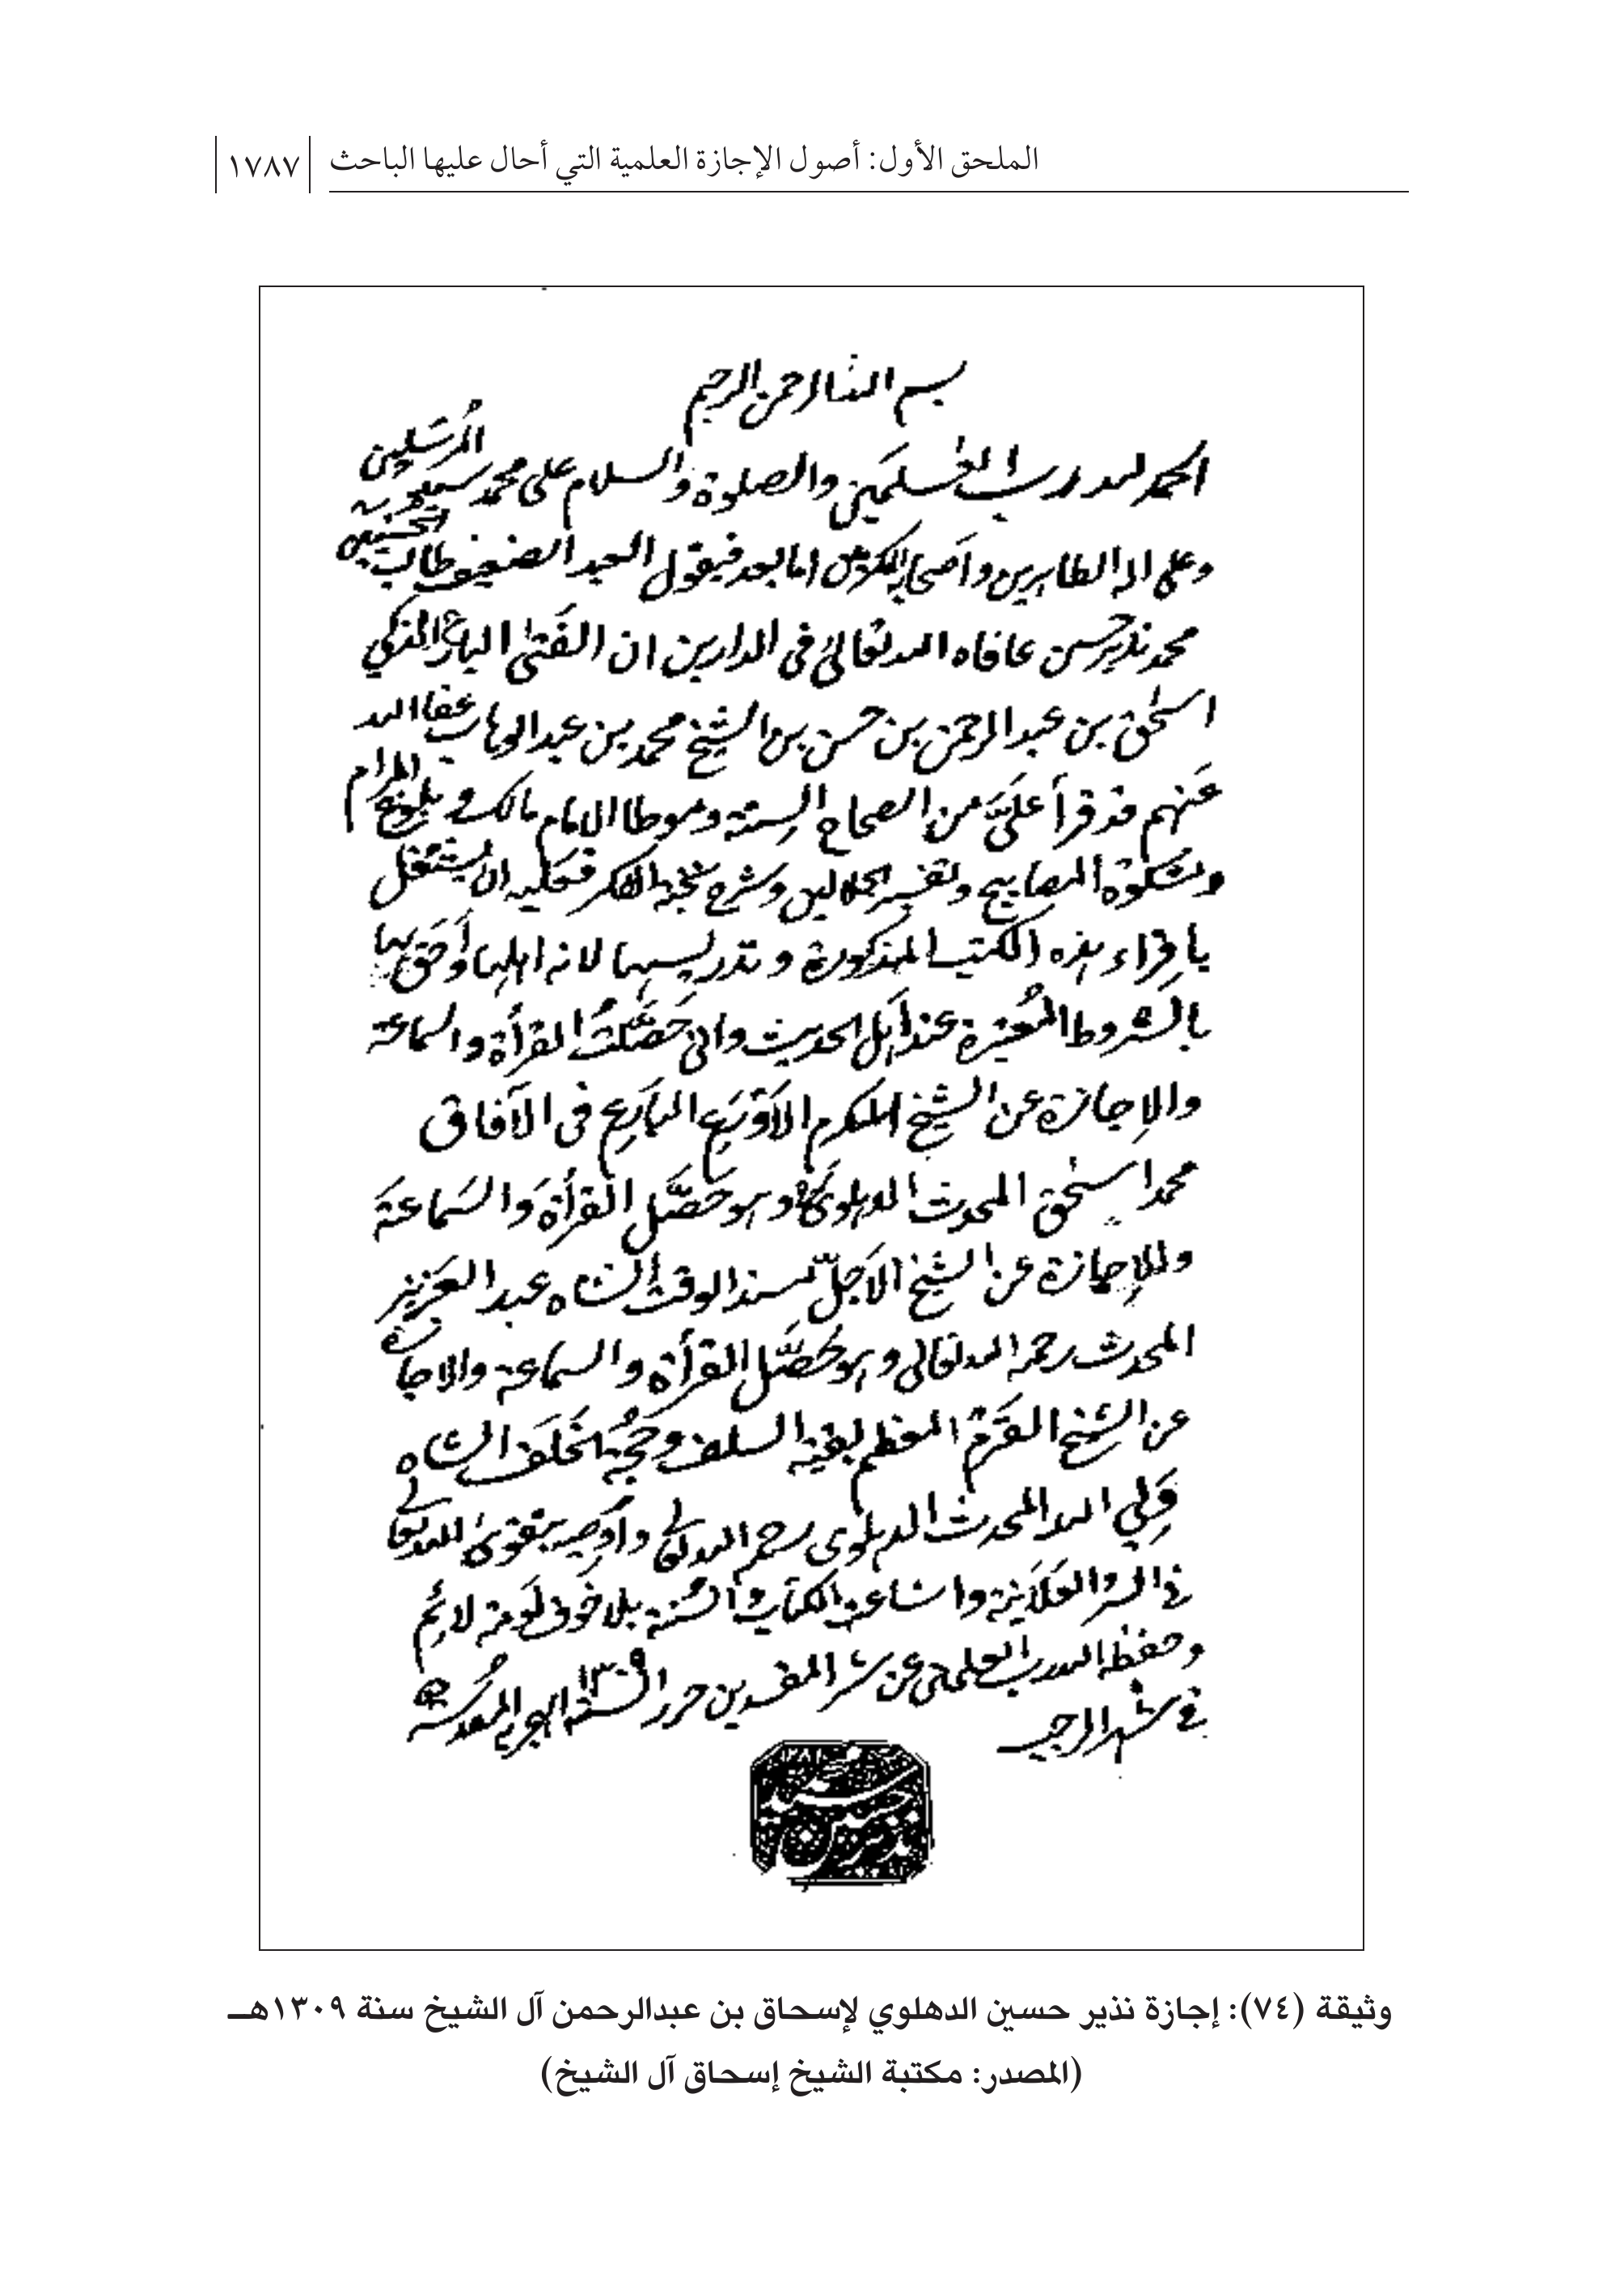 الملحق الأول: أصول الإجازة العلمية التي أحال عليها الباحث ١٧٨٧
بسم الله الرحمن الرحيم
الحمد لله رب العلمين والصلوة والسلام على محمد سيد المرسلين
وعلى اله الطاهرين وأصحابه المكرمين اما بعد فيقول العبد الضعيف طالب الحسنيين
محمد نذير حسين عافاه الله تعالى فى الدارين ان الفتى البارع الذكي
اسحق بن عبد الرحمن بن حسن بن الشيخ محمد بن عبد الوهاب عفا الله
عنهم قد قرأ علي من الصحاح الستة وموطا الامام مالك وبلوغ المرام
ومشكوة المصابيح وتفسير الجلالين وشرح نخبة الفكر فعليه ان يشتغل
بإقراء هذه الكتب المذكورة وتدريسها لانه اهلها وأحق بها
بالشروط المعتبرة عند أهل الحديث وانى حصلت القرأة والسماعة
والإجازة عن الشيخ المكرم الأورع البارع فى الآفاق
محمد اسحق المحدث الدهلوى وهو حصل القرأة والسماعة
والإجازة عن الشيخ الأجل مسند الوقت الشاه عبد العزيز
المحدث رحمه الله تعالى وهو حصل القرأة والسماعة والاجازة
عن الشيخ القرم المعظم بقية السلف وحجة الخلف الشاه
ولي الله المحدث الدهلوى رحمه الله تعالى وأوصيه بتقوى الله تعالى
في السر والعلانية واشاعة الكتاب والسنة بلا خوف لومة لائم
وحفظه الله رب العلمين عن شر المفسدين حرر السنة ١٣٠٩ الهجرية المقدسة
في شهر الرجب
وثيقة (٧٤): إجازة نذير حسين الدهلوي لإسحاق بن عبدالرحمن آل الشيخ سنة ١٣٠٩هـ
(المصدر: مكتبة الشيخ إسحاق آل الشيخ)